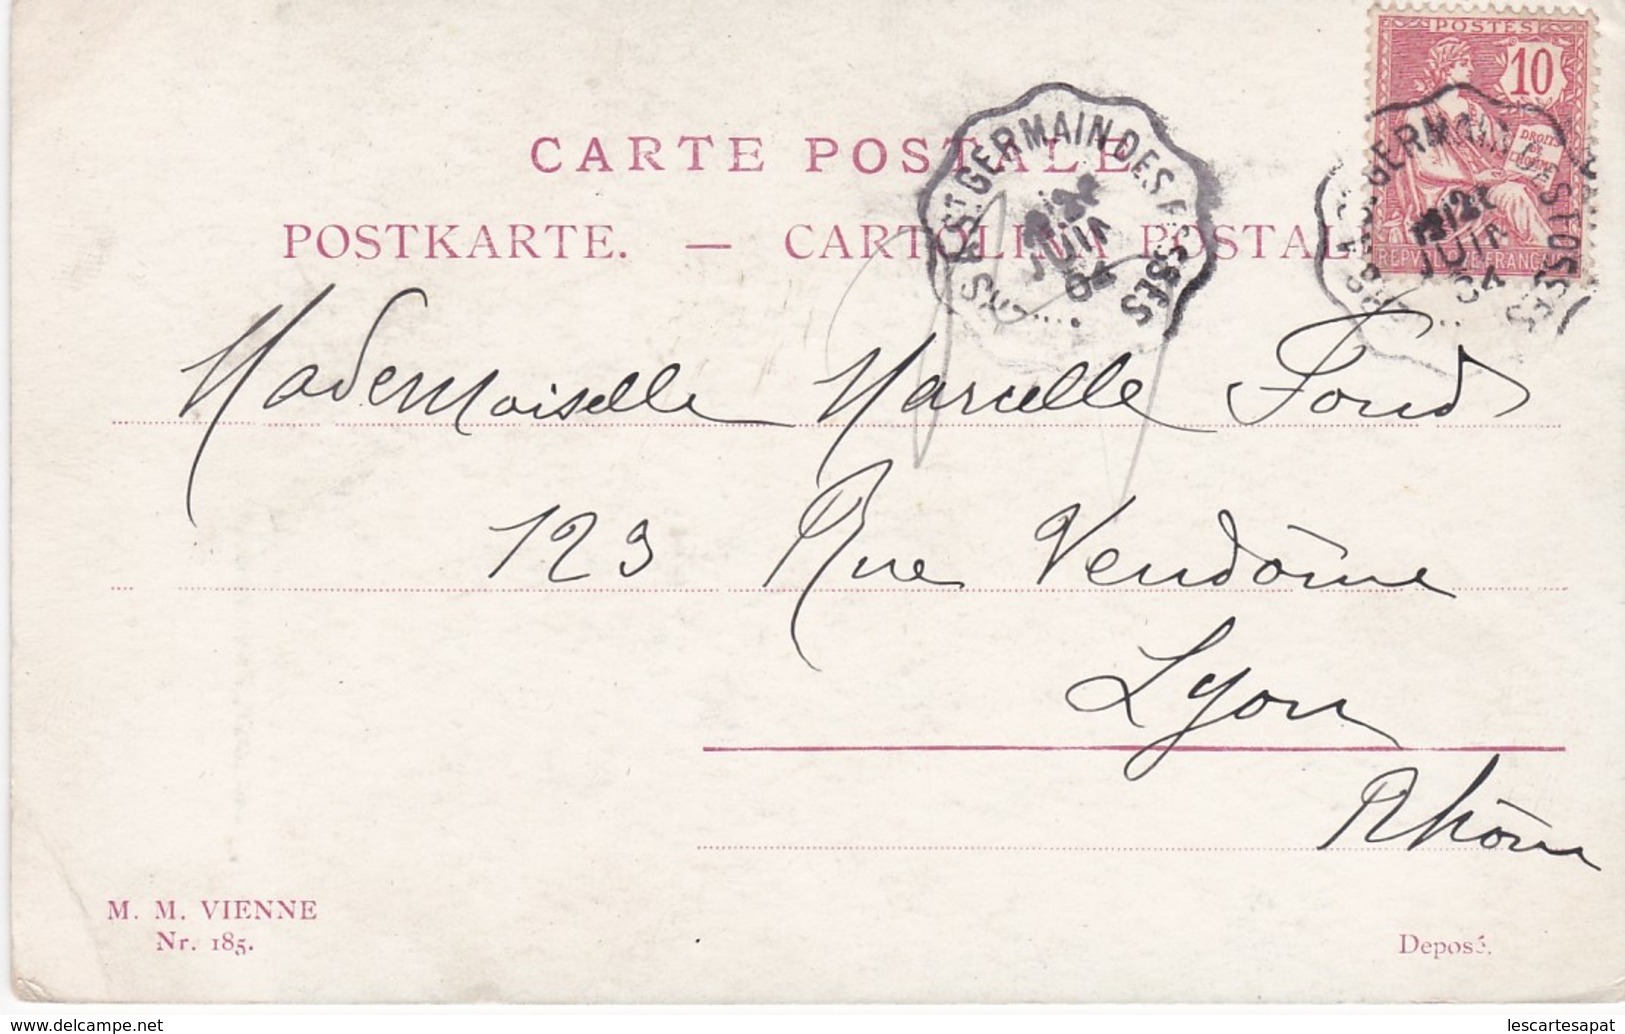 POSTES
10
DROITS
DE
L'HOMME
REPVBLIQVE FRANÇAISE
CARTE POSTALE
POSTKARTE. — CARTOLINA POSTALE
ST GERMAIN DES FOSSES
JUIN
04
ST GERMAIN DES FOSSES
JUIN
04
Mademoiselle Marcelle Fond
123 Rue Vendôme
Lyon
Rhône
M. M. VIENNE
Nr. 185.
Deposé.
www.delcampe.net
lescartesapat